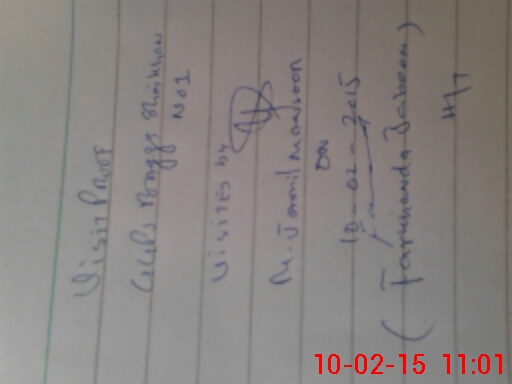 Visit Proof
GGPS Bagga Sheikhan
No 1
Visited by
M. Jamil Mansoor
on
10-02-2015
(Farkhanda Jabeen)
HT
10-02-15 11:01